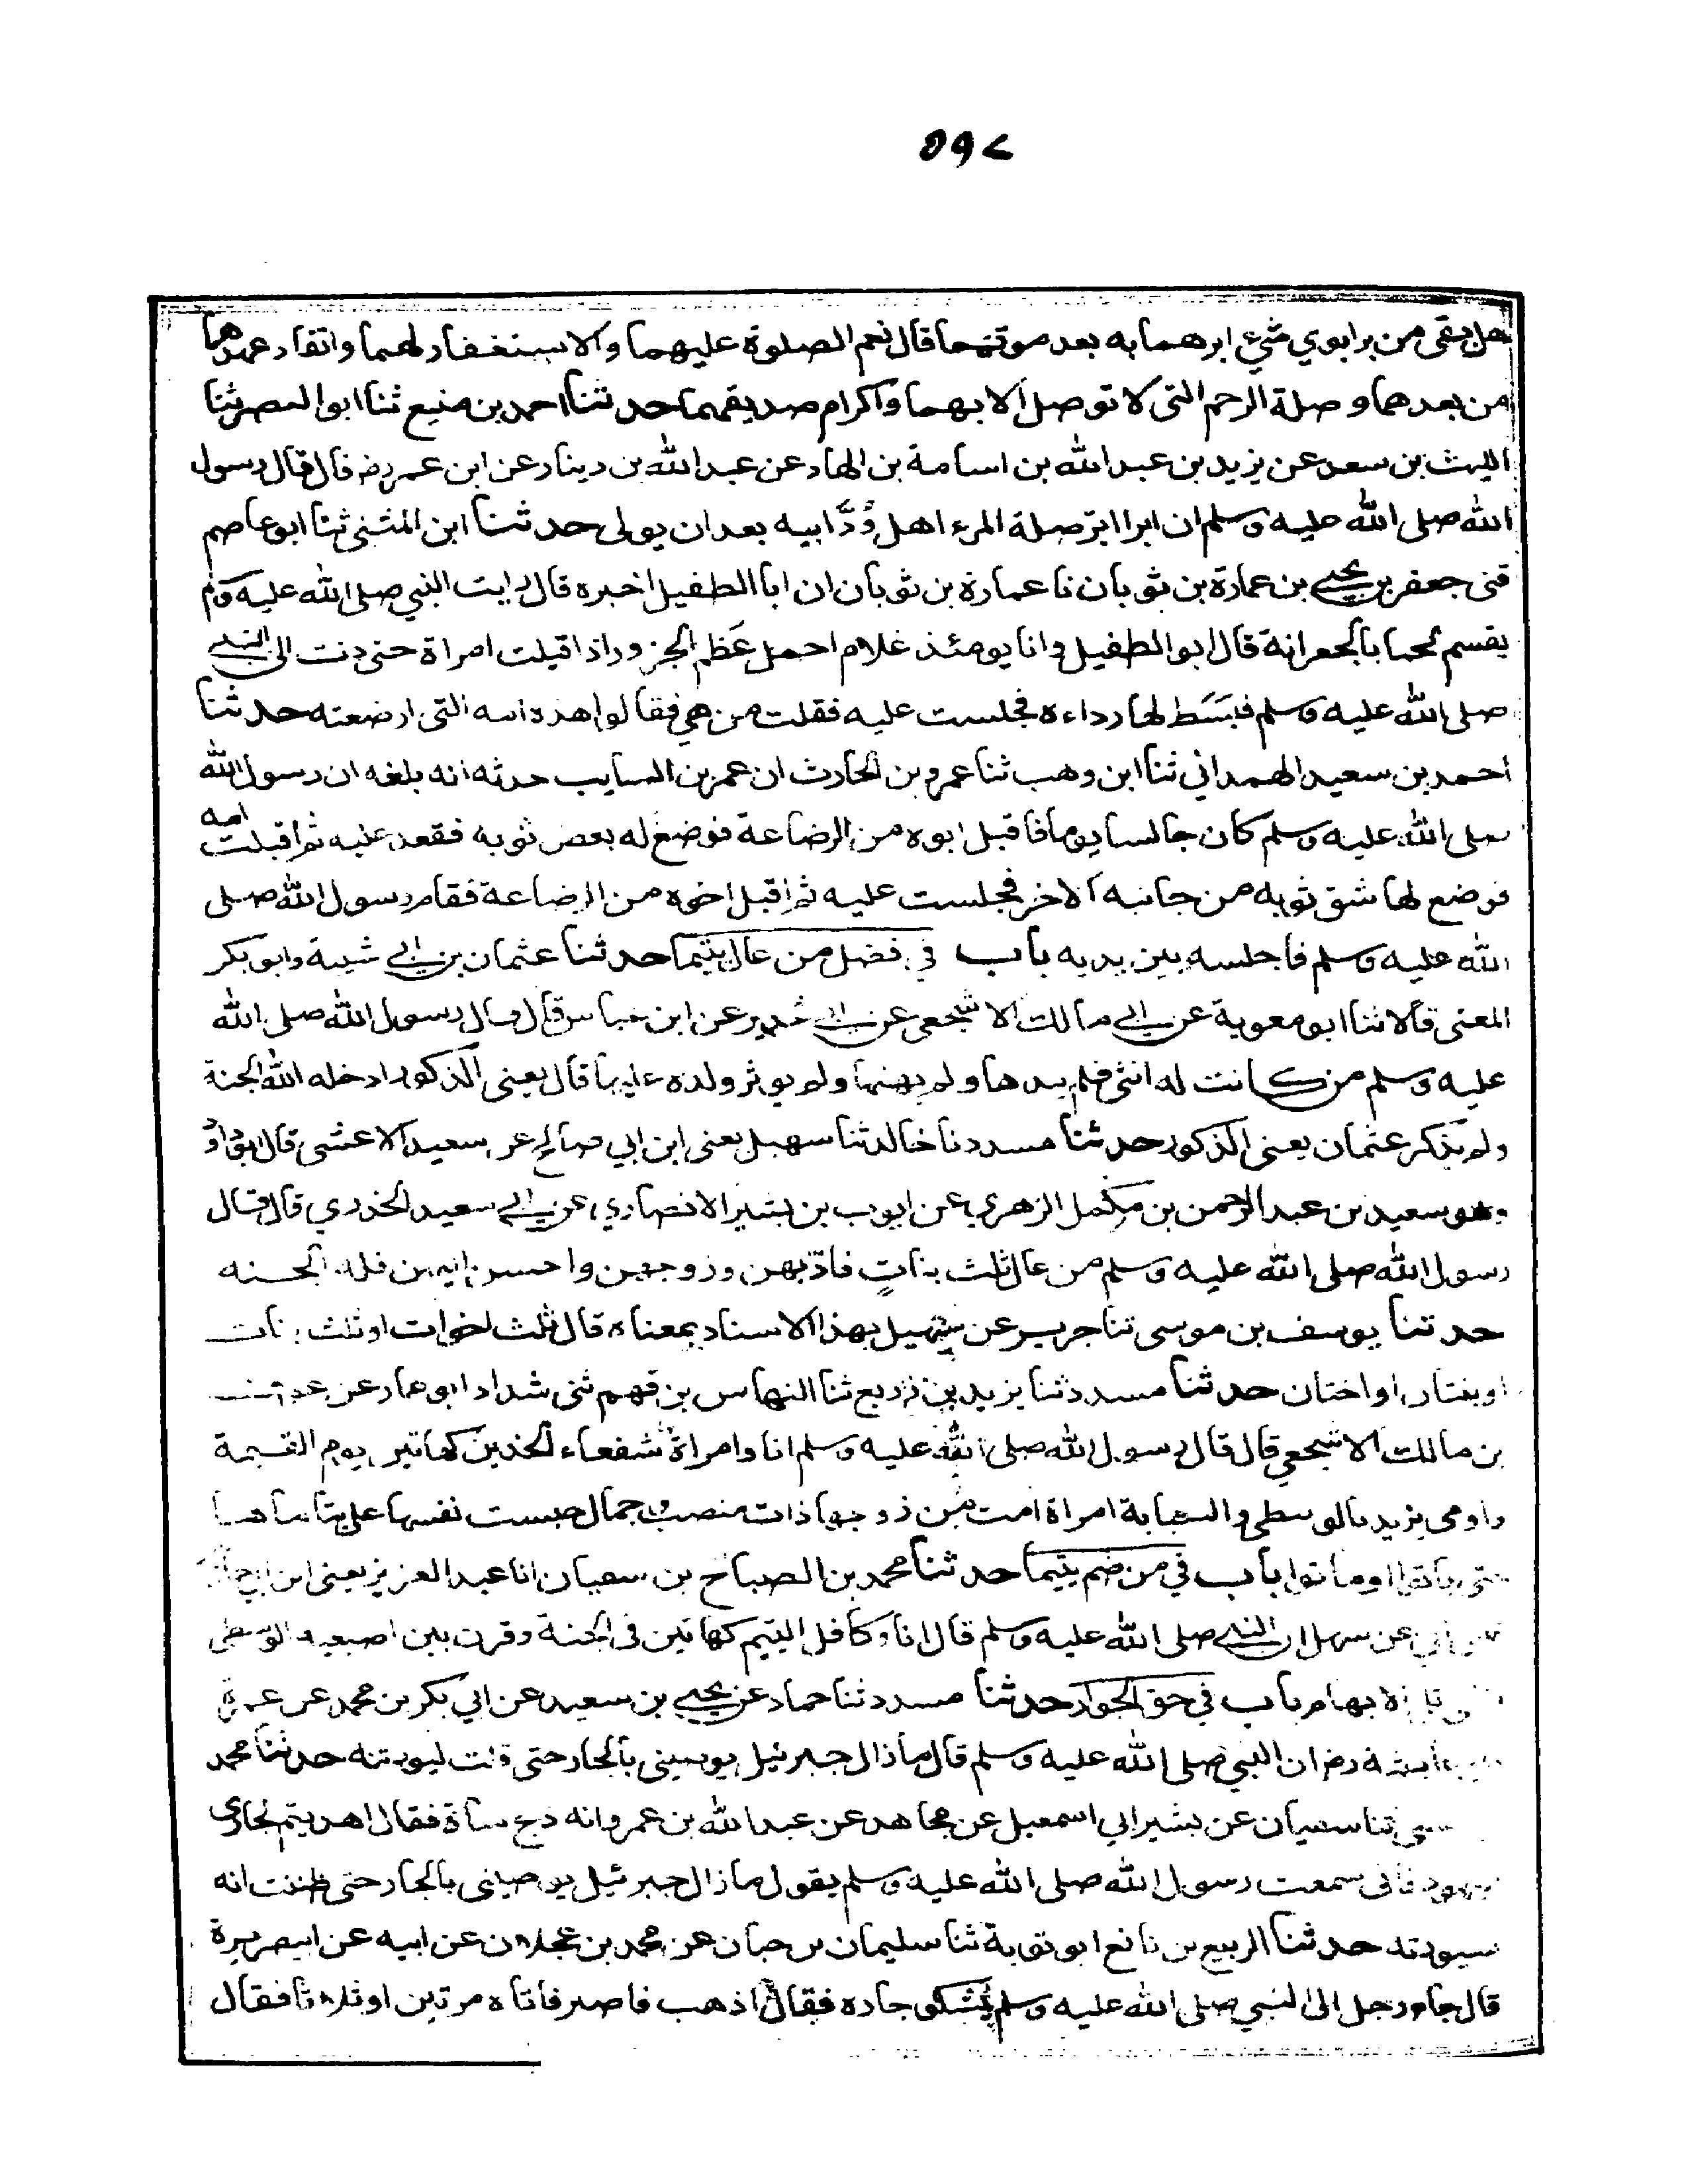 ٥٩٧
هل بقى من بر ابوي شيء ابرهما به بعد موتهما قال نعم الصلوة عليهما والاستغفار لهما وانفاذ عهدهما
من بعدهما وصلة الرحم التى لا توصل الا بهما واكرام صديقهما حدثنا احمد بن منيع ثنا ابو النضر ثنا
الليث بن سعد عن يزيد بن عبد الله بن اسامة بن الهاد عن عبد الله بن دينار عن ابن عمر رض قال قال رسول
الله صلى الله عليه وسلم ان ابر البر صلة المرء اهل وُدّ ابيه بعد ان يولى حدثنا ابن المثنى ثنا ابو عاصم
ثنى جعفر بن يحيى بن عمارة بن ثوبان نا عمارة بن ثوبان ان ابا الطفيل اخبره قال رايت النبي صلى الله عليه وسلم
يقسم لحما بالجعرانة قال ابو الطفيل وانا يومئذ غلام احمل عَظم الجزور اذ اقبلت امراة حتى دنت الى النبي
صلى الله عليه وسلم فبَسَط لها رداءه فجلست عليه فقلت من هي فقالوا هذه امه التى ارضعته حدثنا
احمد بن سعيد الهمداني ثنا ابن وهب ثنا عمرو بن الحارث ان عمر بن السايب حدثه انه بلغه ان رسول الله
صلى الله عليه وسلم كان جالسا يوما فاقبل ابوه من الرضاعة فوضع له بعض ثوبه فقعد عليه ثم اقبلت امه
فوضع لها شق ثوبه من جانبه الاخر فجلست عليه ثم اقبل اخوه من الرضاعة فقام رسول الله صلى
الله عليه وسلم فاجلسه بين يديه باب في فضل من عال يتيما حدثنا عثمان بن ابي شيبة وابو بكر
المعنى قالا ثنا ابو معوية عن ابي مالك الاشجعي عن ابن حدير عن ابن عباس قال قال رسول الله صلى الله
عليه وسلم من كانت له انثى فلم يئدها ولم يهنها ولم يوثر ولده عليها قال يعنى الذكور ادخله الله الجنة
ولم يذكر عثمان يعنى الذكور حدثنا مسدد نا خالد ثنا سهيل يعنى ابن ابي صالح عن سعيد الاعشى قال ابو داود
وهو سعيد بن عبد الرحمن بن مكمل الزهري عن ايوب بن بشير الانصاري عن ابي سعيد الخدري قال قال
رسول الله صلى الله عليه وسلم من عال ثلث بناتٍ فادّبهن وزوجهن واحسن اليهن فله الجنه
حدثنا يوسف بن موسى ثنا جرير عن سهيل بهذا الاسناد بمعناه قال ثلث اخوات او ثلث بنات
او بنتان او اختان حدثنا مسدد ثنا يزيد بن زريع ثنا النهاس بن قهم ثنى شداد ابو عمار عن عوف
بن مالك الاشجعي قال قال رسول الله صلى الله عليه وسلم انا وامراة سفعاء الخدين كهاتين يوم القيمة
واومى يزيد بالوسطى والسبابة امراة امت من زوجها ذات منصب وجمال حبست نفسها على يتاماها
حتى بانوا او ماتوا باب في من ضم يتيما حدثنا محمد بن الصباح بن سفيان انا عبد العزيز يعنى ابن ابي حازم
ثنى ابي عن سهل ان النبي صلى الله عليه وسلم قال انا وكافل اليتيم كهاتين في الجنة وقرن بين اصبعيه الوسطى
والتى تلى الابهام باب في حق الجوار حدثنا مسدد ثنا حماد عن يحيى بن سعيد عن ابي بكر بن محمد عن عمرة
عن عايشة رض ان النبي صلى الله عليه وسلم قال ما زال جبرئيل يوصينى بالجار حتى قلت ليورثنه حدثنا محمد
بن عيسى ثنا سفيان عن بشير ابي اسمعيل عن مجاهد عن عبد الله بن عمرو انه ذبح شاة فقال اهديتم لجارى
اليهودى فانى سمعت رسول الله صلى الله عليه وسلم يقول ما زال جبرئيل يوصينى بالجار حتى ظننت انه
سيورثه حدثنا الربيع بن نافع ابو توبة ثنا سليمان بن حيان عن محمد بن عجلان عن ابيه عن ابي هريرة
قال جاء رجل الى النبي صلى الله عليه وسلم يشكو جاره فقال اذهب فاصبر فاتاه مرتين او ثلاثا فقال